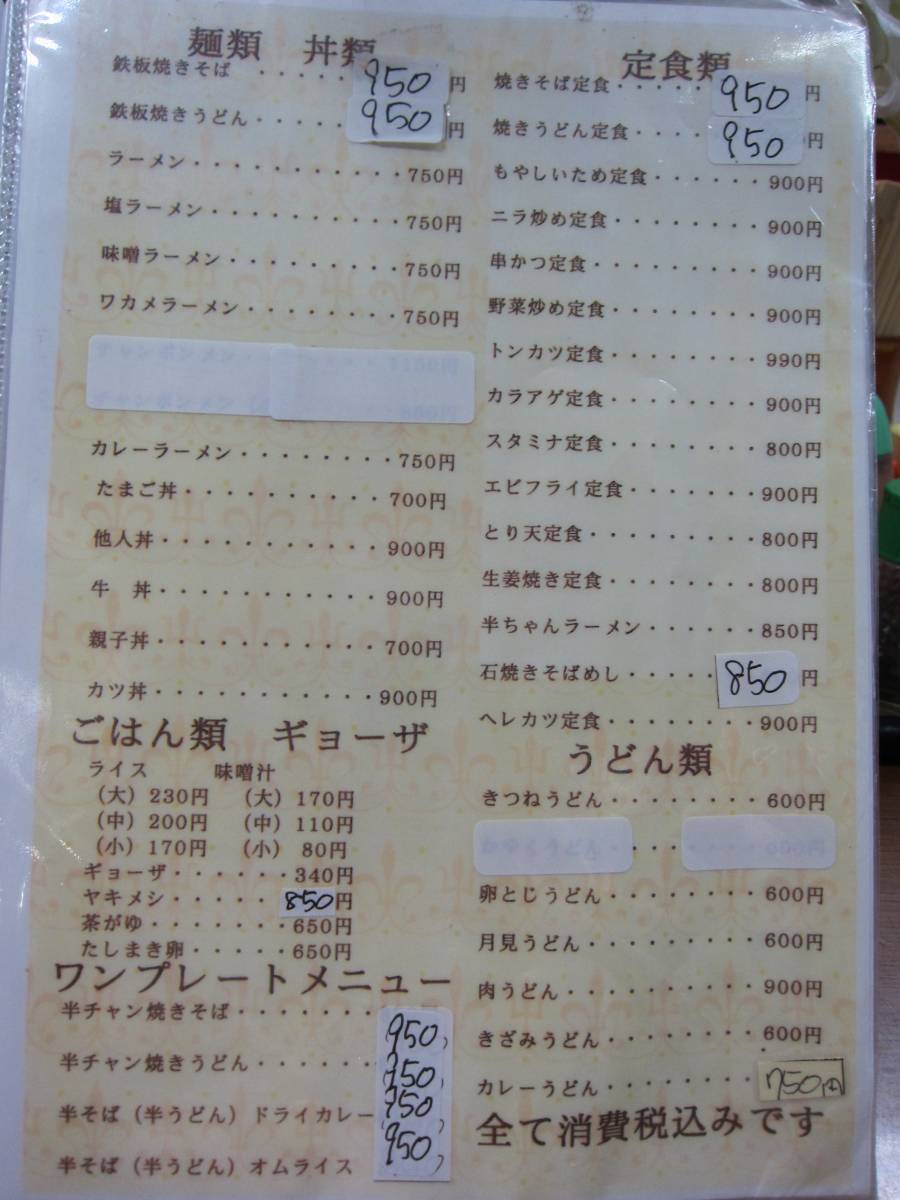 麺類　丼類
鉄板焼きそば ・・・・・ 950円
鉄板焼きうどん・・・・ 950円
ラーメン・・・・・・・・・・750円
塩ラーメン・・・・・・・・・750円
味噌ラーメン・・・・・・・・750円
ワカメラーメン・・・・・・・750円
カレーラーメン・・・・・・・750円
たまご丼・・・・・・・・・・700円
他人丼・・・・・・・・・・・900円
牛　丼・・・・・・・・・・・900円
親子丼・・・・・・・・・・・700円
カツ丼・・・・・・・・・・・900円
ごはん類　ギョーザ
ライス　味噌汁
（大）230円　（大）170円
（中）200円　（中）110円
（小）170円　（小）80円
ギョーザ・・・・・・340円
ヤキメシ・・・・・850円
茶がゆ・・・・・・・650円
たしまき卵・・・・・650円
ワンプレートメニュー
半チャン焼きそば・・・・・・・950
半チャン焼きうどん・・・・・・950
半そば（半うどん）ドライカレー 950
半そば（半うどん）オムライス 950
定食類
焼きそば定食・・・・・ 950円
焼きうどん定食・・・・ 950円
もやしいため定食・・・・・・・900円
ニラ炒め定食・・・・・・・・900円
串かつ定食・・・・・・・・・900円
野菜炒め定食・・・・・・・・900円
トンカツ定食・・・・・・・・990円
カラアゲ定食・・・・・・・・900円
スタミナ定食・・・・・・・・800円
エビフライ定食・・・・・・・900円
とり天定食・・・・・・・・・800円
生姜焼き定食・・・・・・・・800円
半ちゃんラーメン・・・・・・850円
石焼きそばめし・・・・・850円
ヘレカツ定食・・・・・・・・900円
うどん類
きつねうどん・・・・・・・・600円
卵とじうどん・・・・・・・・600円
月見うどん・・・・・・・・・600円
肉うどん・・・・・・・・・・900円
きざみうどん・・・・・・・・600円
カレーうどん・・・・・・・・750円
全て消費税込みです